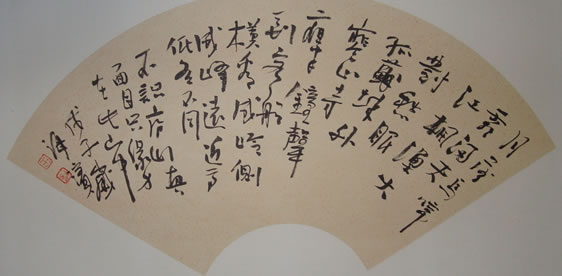 月落烏啼
霜滿天
江楓漁火
對愁眠
姑蘇城外
寒山寺
夜半鐘聲
到客船
橫看成嶺側
成峰遠近高
低各不同
不識廬山真
面目只緣身
在此山中
戊子歲